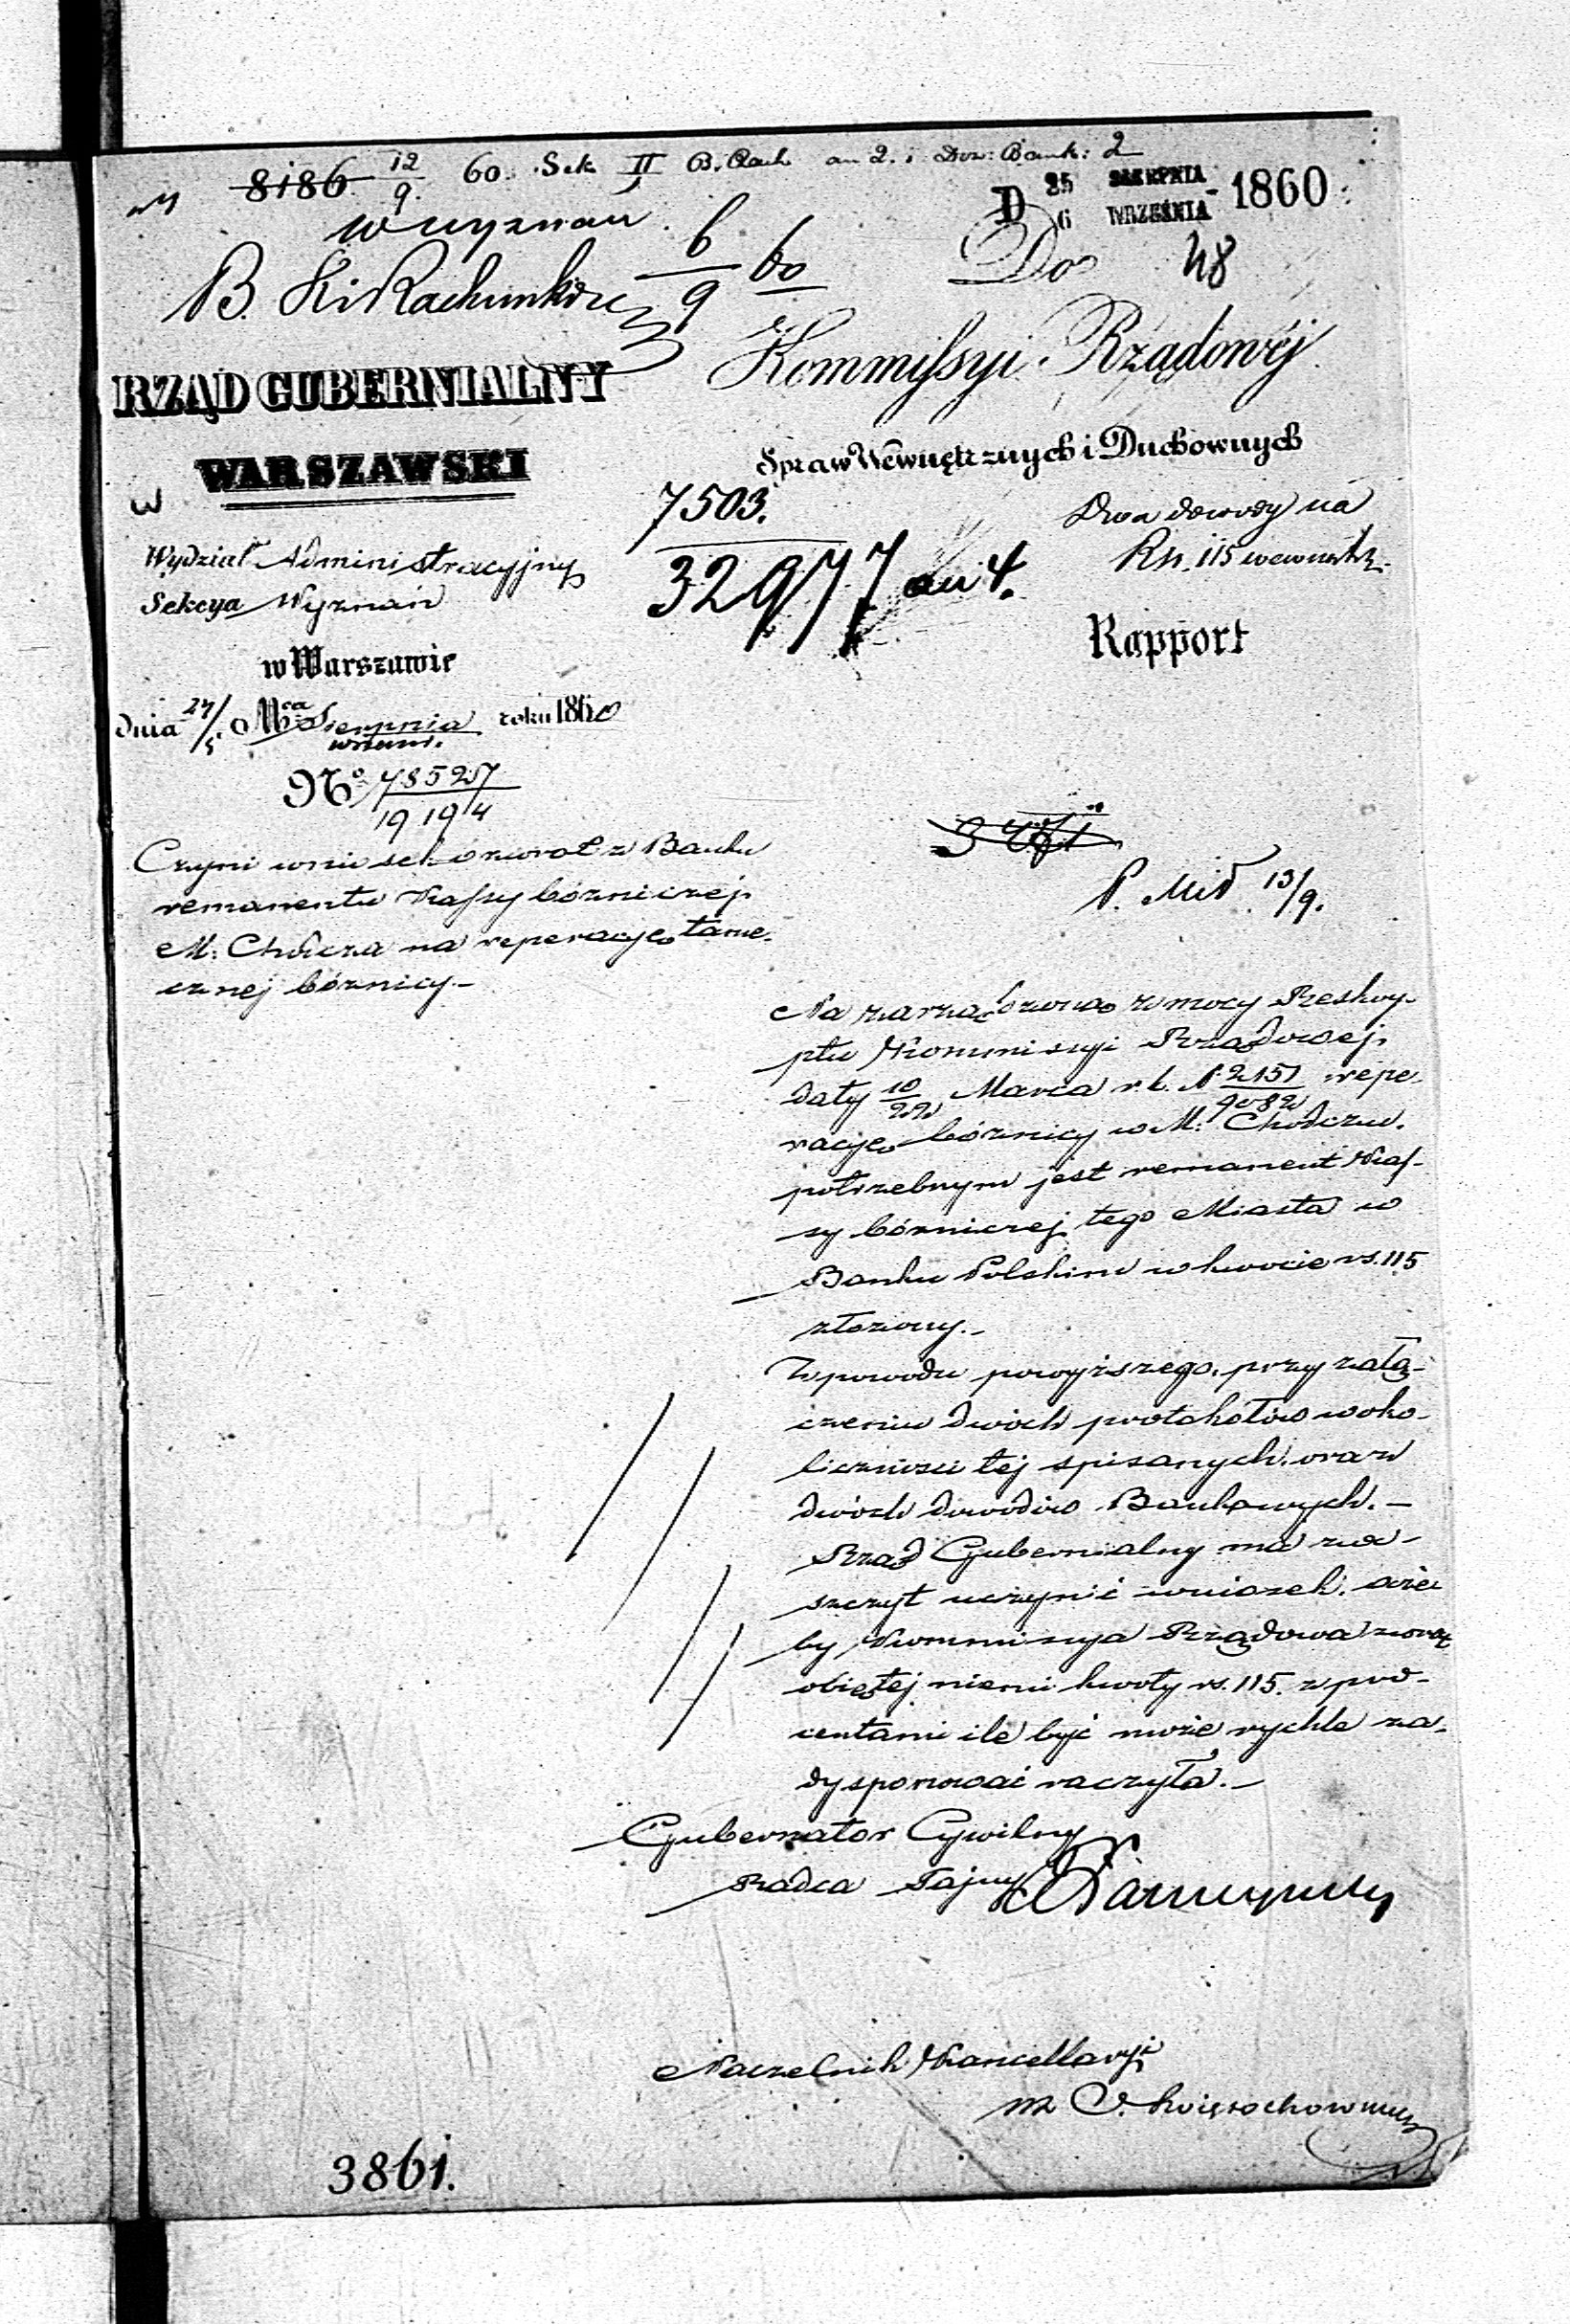 8186 12/9 60. Sek II B. Rach an 2. i Dow: Bank: 2
D 25 SIERPNIA
6 WRZEŚNIA - 1860
W wyznań
B. K i Rachunków 6/9 60
Do
48
Kommissyi Rządowéj
RZĄD GUBERNIALNY
WARSZAWSKI
Spraw Wewnętrznych i Duchownych
7503.
32977 an 4.
Dwa dowody na
Rs. 115 wewnątrz.
Wydział Administracyjny
Sekcya Wyznań
Rapport
w Warszawie
dnia 24/5 Mca Sierpnia roku 1860
wrześni.
No 78527
19194
Czyni wniosek o zwrot z Banku
remanentu Kassy bóżniczej
M: Chodcza na reperacyę tame-
cznej bóżnicy.-
13/9.
Na zarządzoną z mocy Reskry-
ptu Kommissyi Rządowej
daty 10/22 Marca r. b. N. 2151/9082 repe-
racyę bóżnicy w M: Chodczu.
potrzebnym jest remanent Kas-
sy bóżniczej tego Miasta w
Banku Polskim w kwocie rs. 115
złożony.-
Z powodu powyższego, przy załą-
czeniu dwóch protokołów w oko-
liczności tej spisanych, oraz
dwóch dowodów Bankowych. -
Rząd Gubernialny ma za-
szczyt uczynić wniosek, aże-
by Kommissya Rządowa zwrot
objętej niemi kwoty rs. 115. z pro-
centami ile być może rychle za-
dysponować raczyła.-
Gubernator Cywilny
Radca Tajny
Naczelnik Kancellaryi
3861.